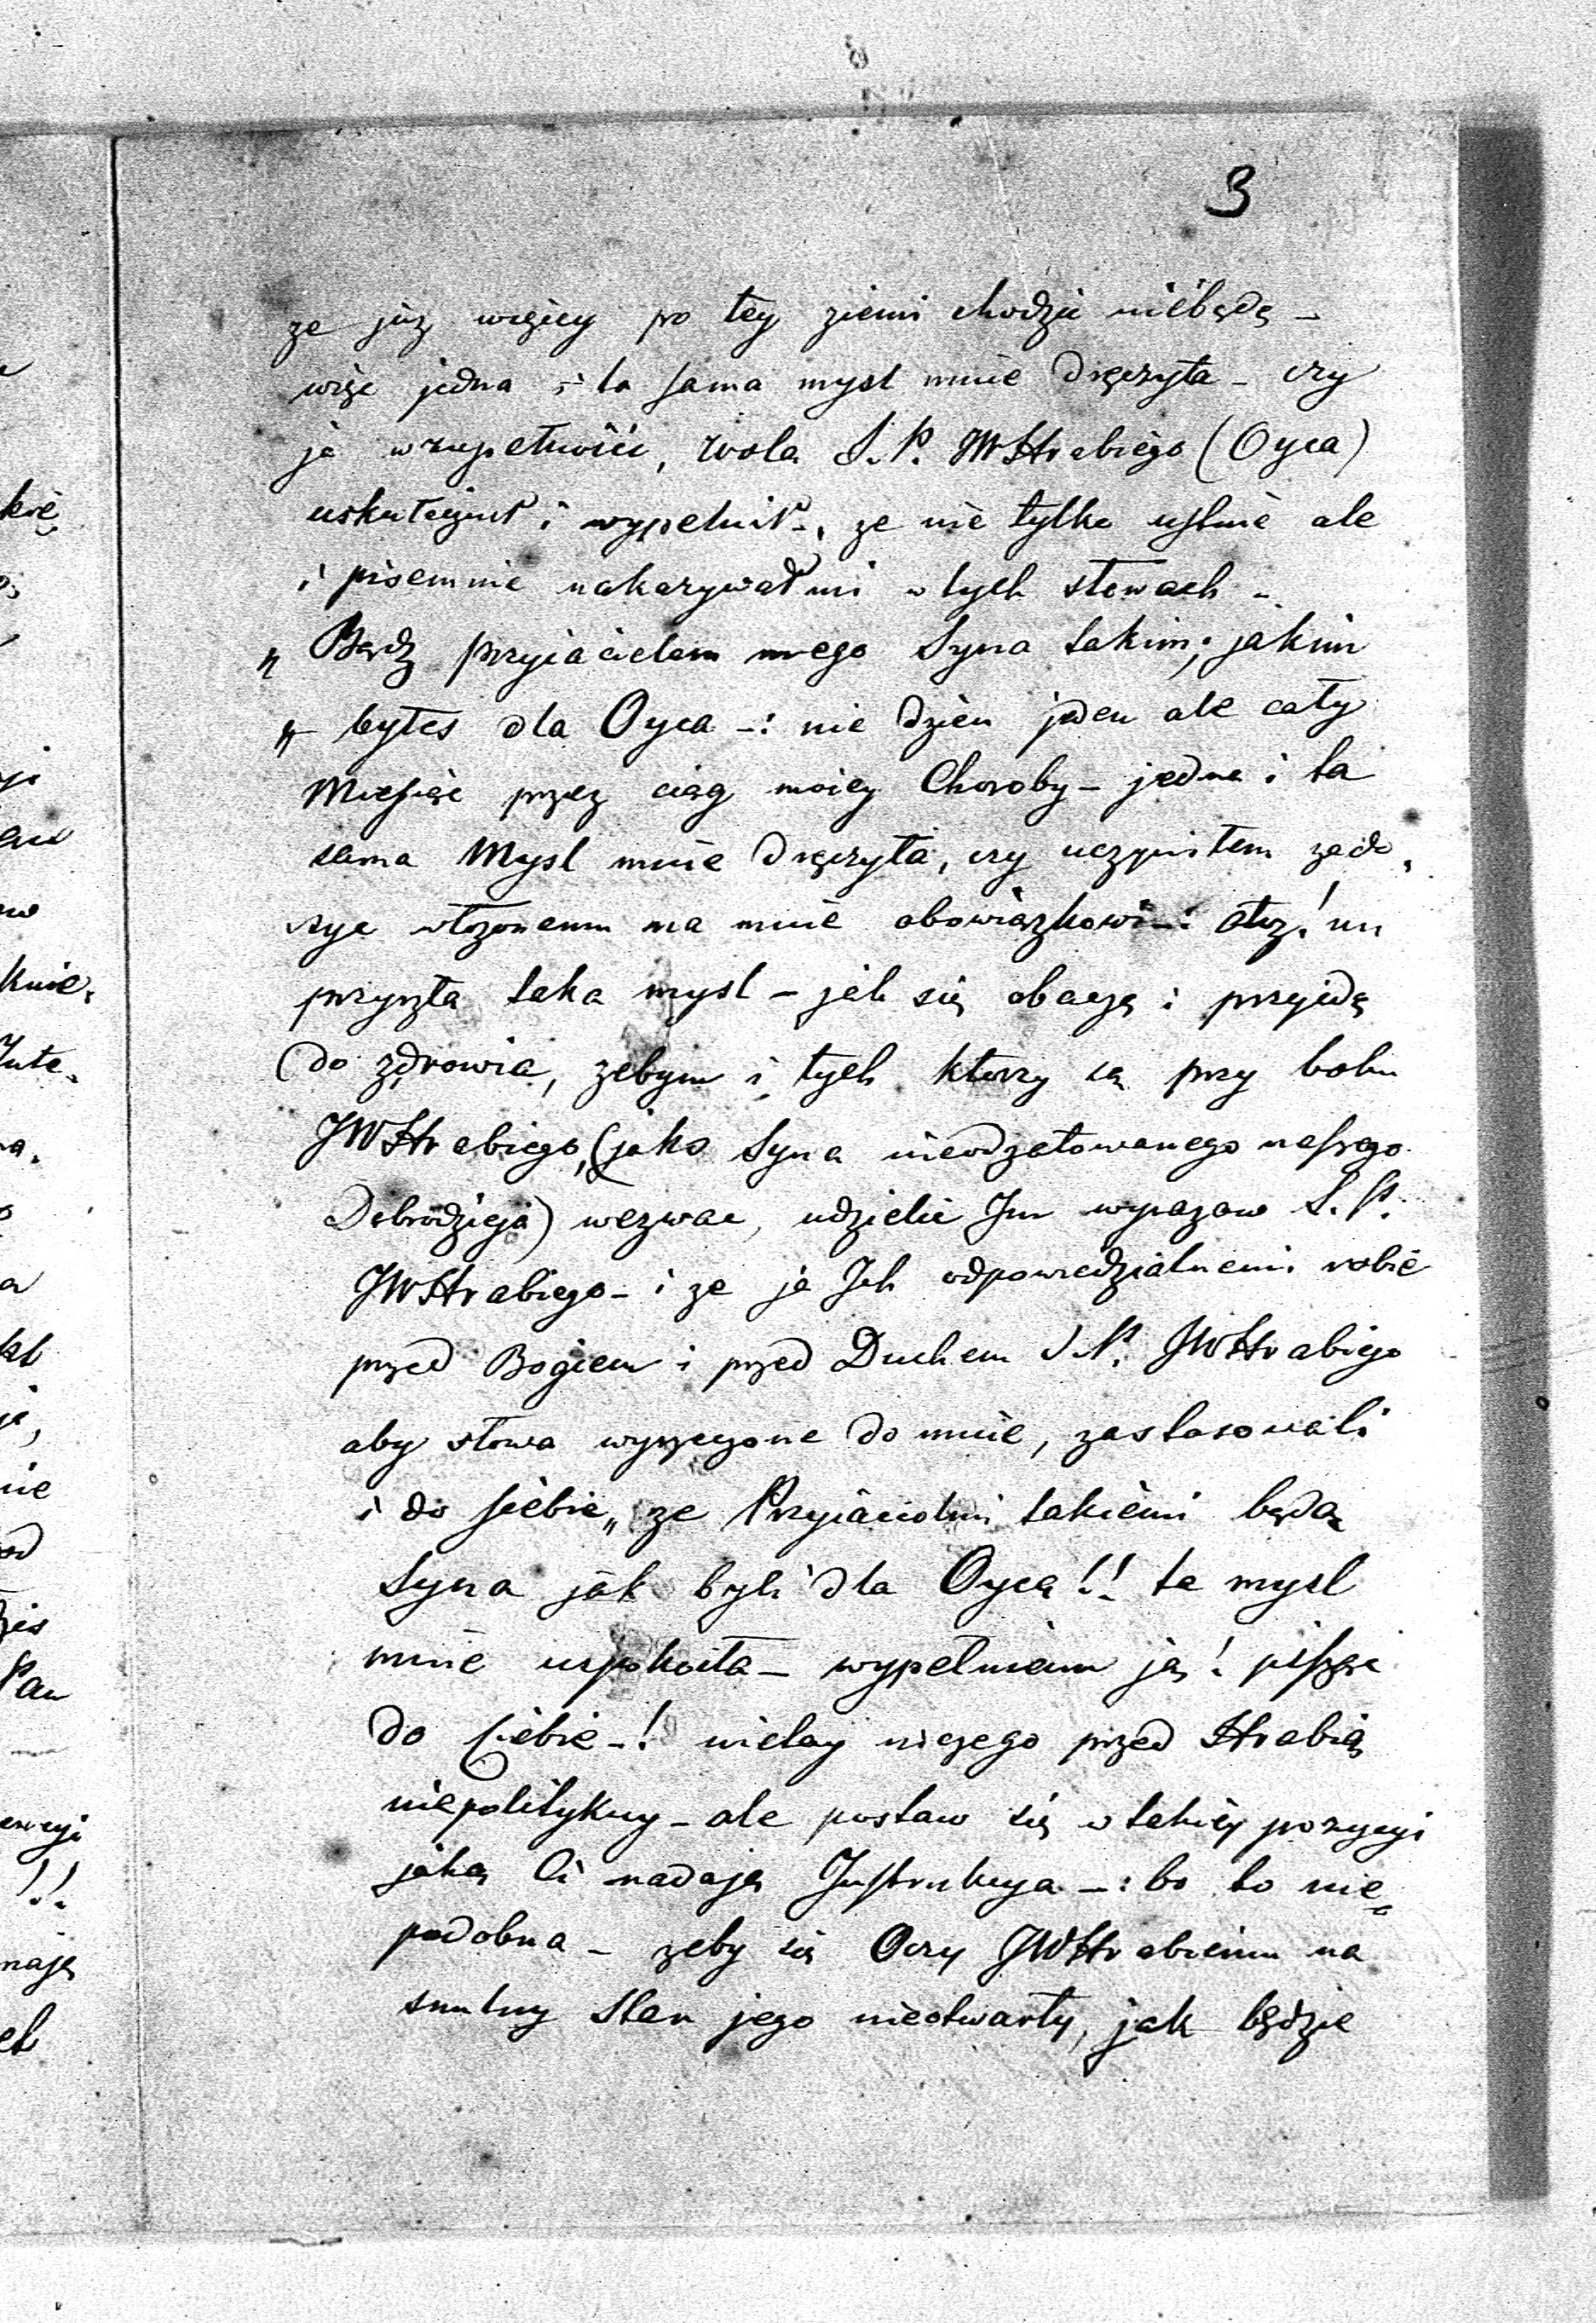 3
ze już więcey po tey ziemi chodzić niebędę –
więc jedna i ta sama mysl mnie dręczyła – czy
ja w zupełności, wolą S.P. JWHrabiego (Oyca)
uskutecznił i wypełnił –, ze nie tylko ustnie ale
i pisemnie nakazywał mi w tych słowach –
„ Bądz przyiacielem mego Syna takim, jakim
„ byłes dla Oyca –: nie dzien jeden ale cały
Miesiąc przez ciąg moiey Choroby – jedna i ta
sama Mysl mnie dręczyła, czy uczyniłem zado,
syc włozonemu na mnie obowiązkowi –: otoz! mi
przyszła taka mysl – jak się obaczę i przyidę
do zdrowia, zebym i tych ktorzy są przy boku
JWHrabiego, (jako Syna nieodzałowanego naszego
Dobrodzieja) wezwac, udzielic Im wyrazow S.P.
JWHrabiego – i ze ja Ich odpowiedzialnemi robie
przed Bogiem i przed Duchem S.P. JWHrabiego
aby słowa wyrzeczone do mnie, zastasowali
i do siebie „ ze Przyiaciołmi takiemi będą
Syna jak byli dla Oyca!! ta mysl
mnie uspokoiła – wypełniam ją! piszę
do Ciebie –! nietay niczego przed Hrabią
niepolitykuy – ale postaw się w takiey pozycyi
jaką Ci nadaję Instrukcya –: bo to nie„
podobna – zeby się Oczy JWHrabiemu na
smutny Stan jego nieotwarły, jak będzie